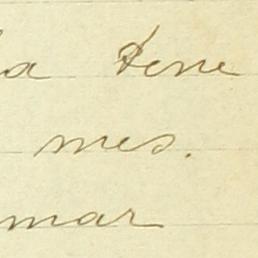 la tene
mes.
mar